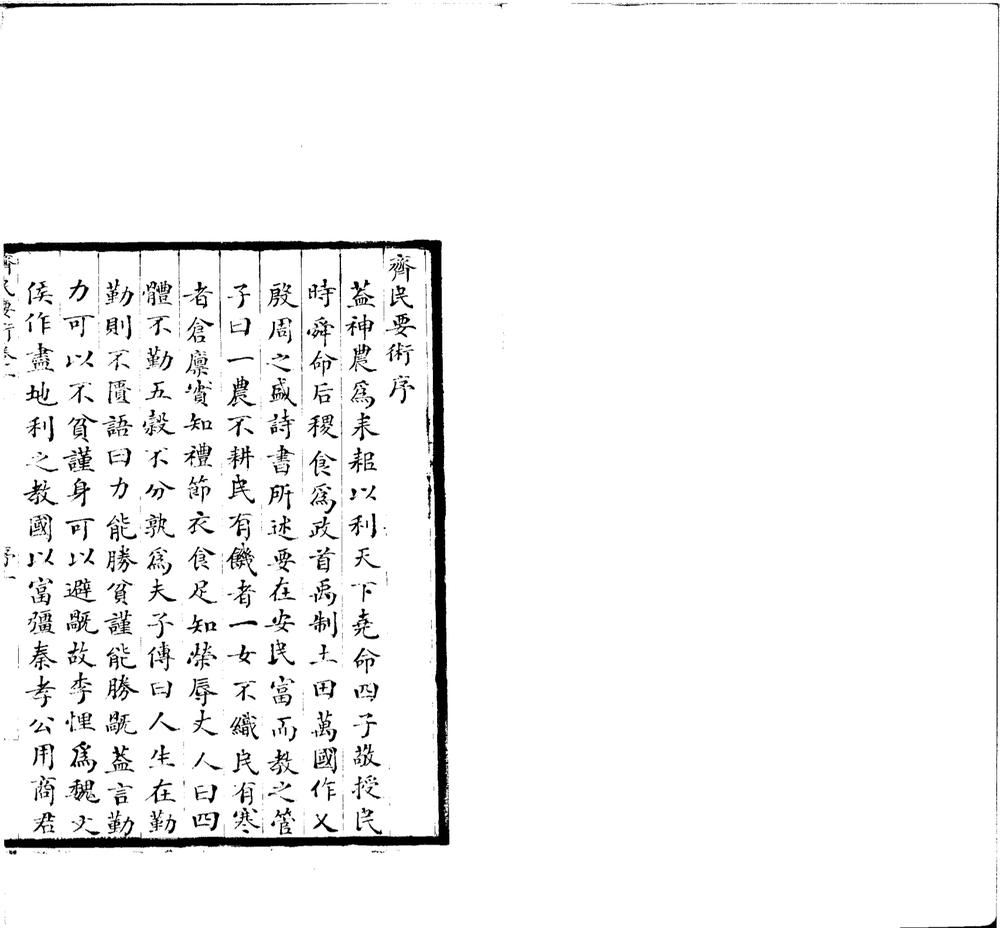 齊民要術序
葢神農爲耒耜以利天下堯命四子敬授民
時舜命后稷食爲政首禹制土田萬國作乂
殷周之盛詩書所述要在安民富而教之管
子曰一農不耕民有饑者一女不織民有寒
者倉廩實知禮節衣食足知榮辱丈人曰四
體不勤五穀不分孰爲夫子傳曰人生在勤
勤則不匱語曰力能勝貧謹能勝禍葢言勤
力可以不貧謹身可以避禍故李悝爲魏文
侯作盡地利之教國以富彊秦孝公用商君
齊民要術卷一
序一